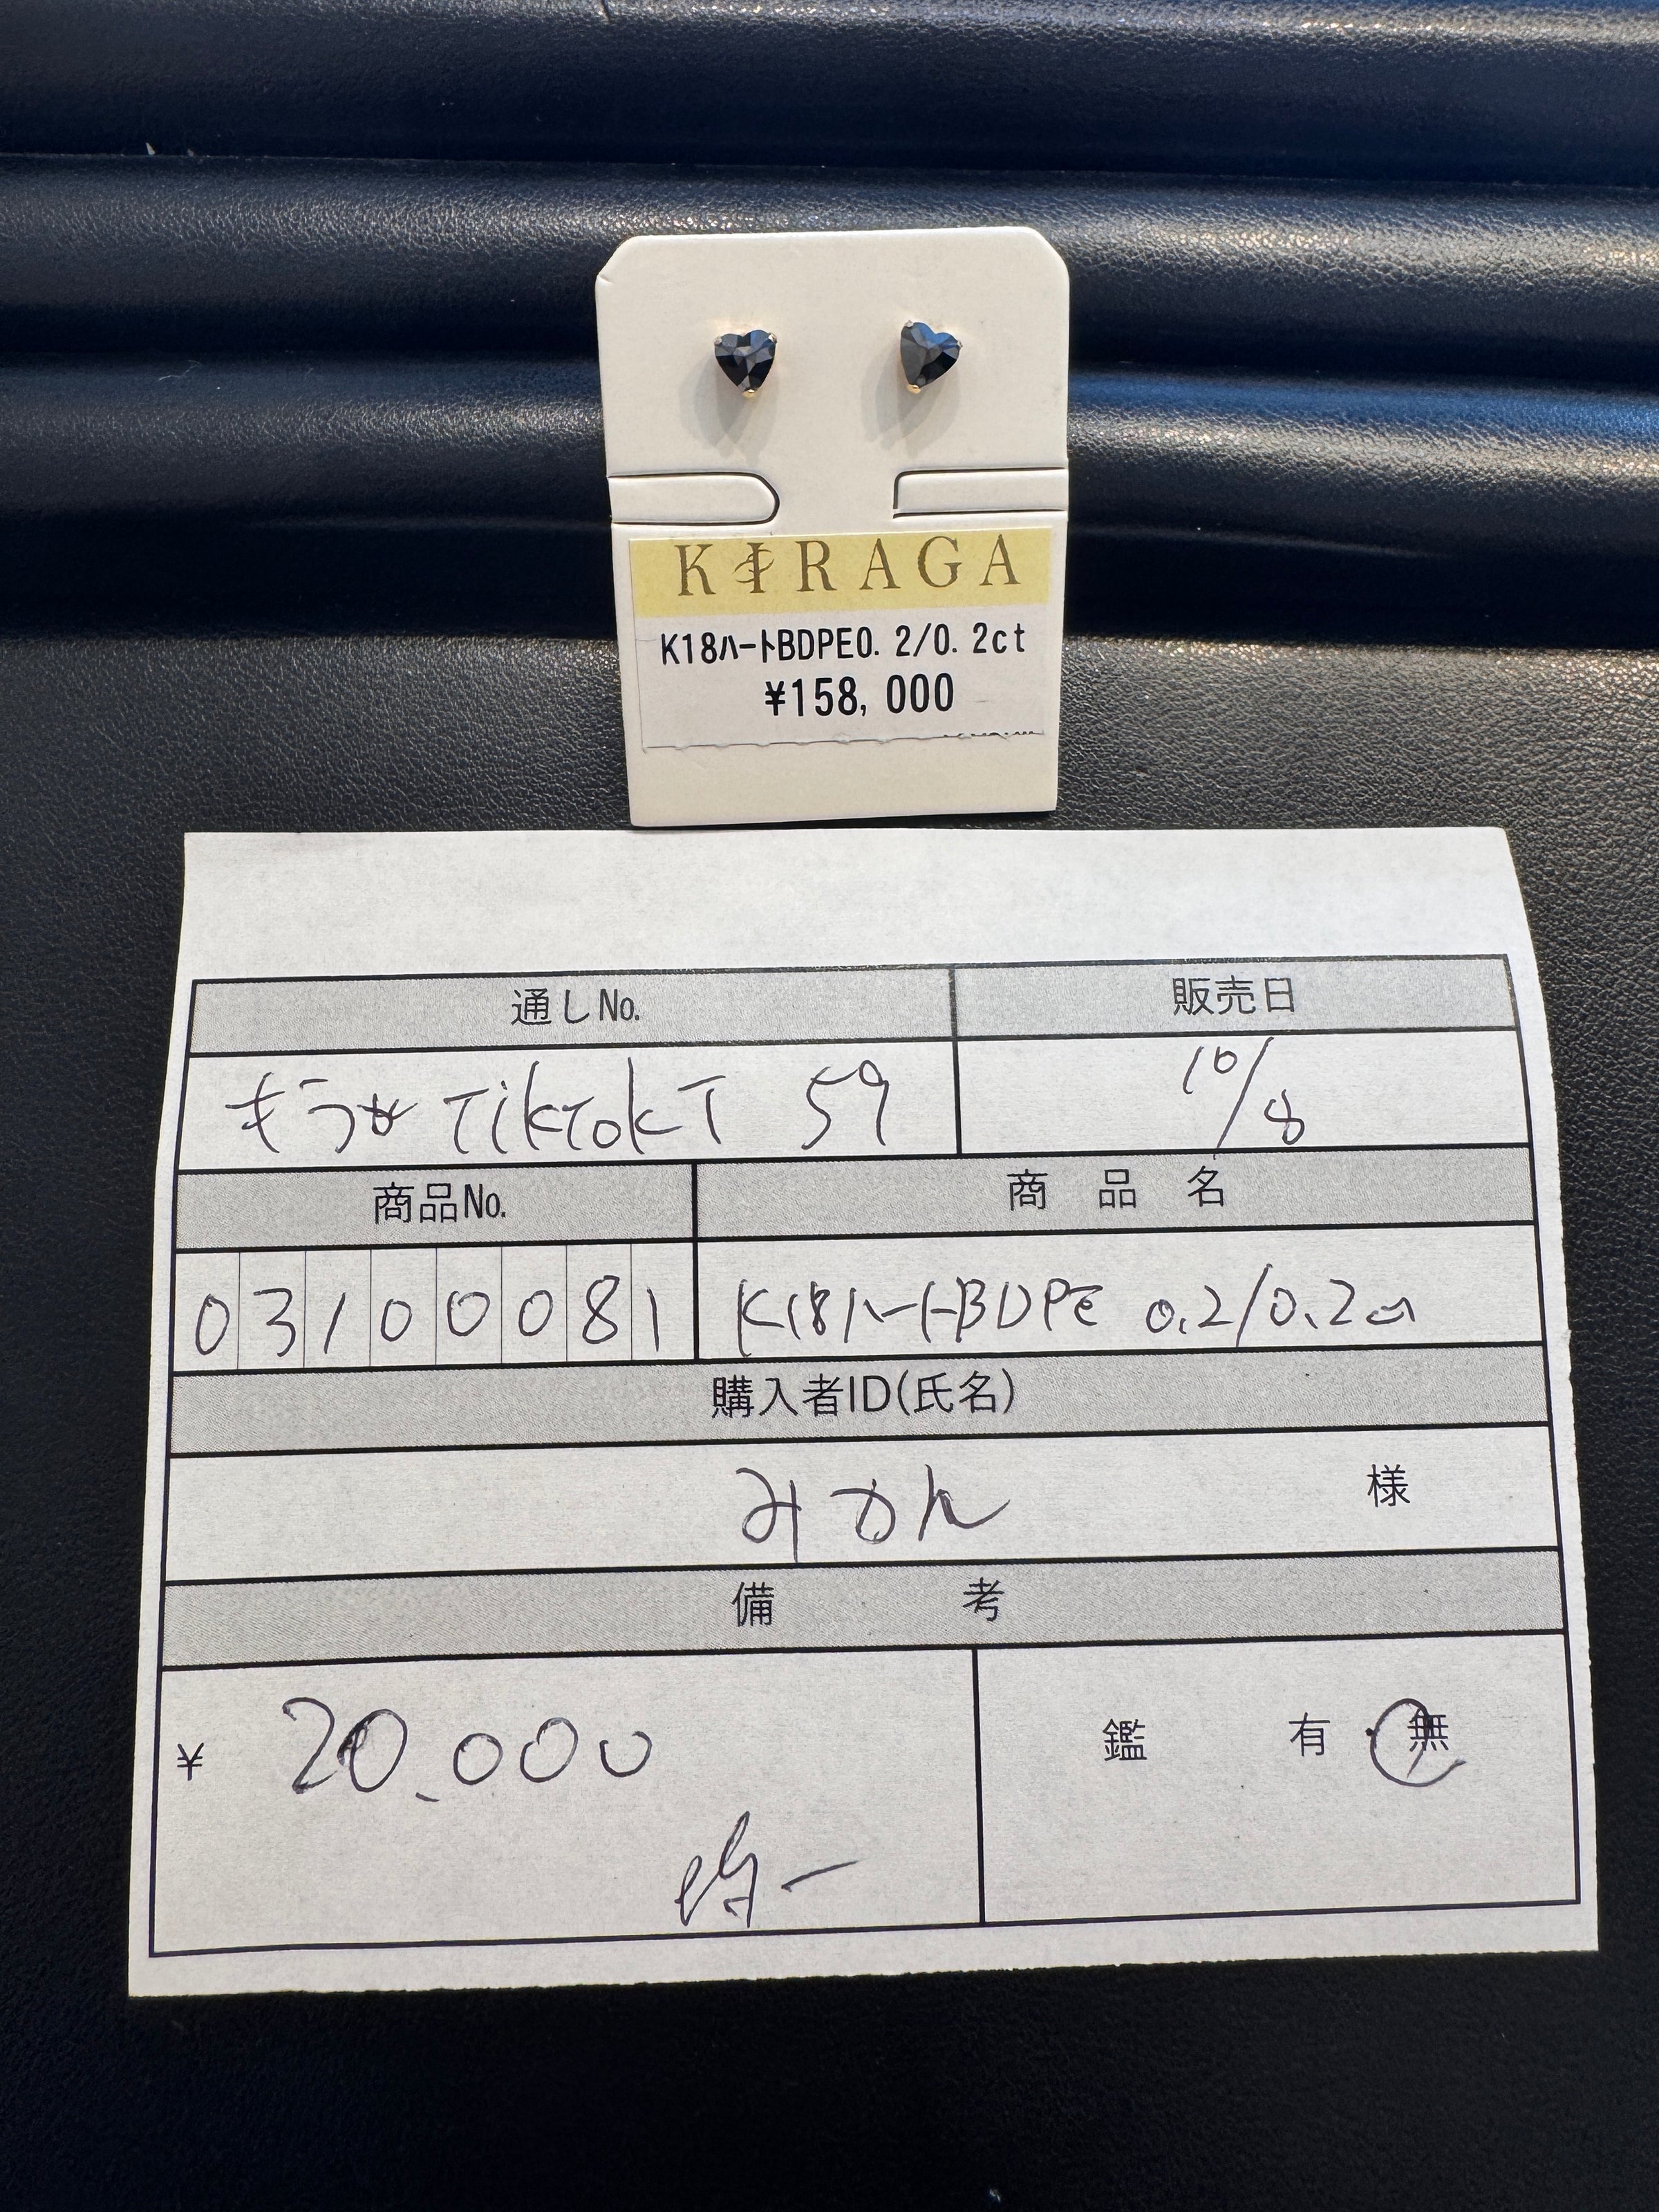 KIRAGA
K18ハートBDPE0.2/0.2ct
¥158,000
通しNo.
販売日
TikTokT 59
10/8
商品No.
商品名
03100081
K18ハートBDPE 0.2/0.2ct
購入者ID(氏名)
みかん 様
備考
¥ 20,000
鑑 有・無